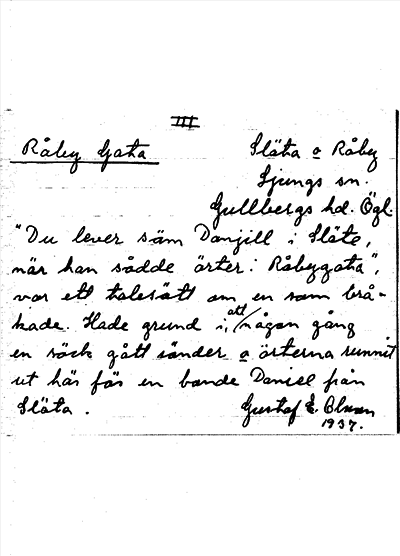 III
Råby Gata
Släta o Råby
Ljungs sn.
Gullbergs hd. Ögl.
"Du lever säm Danjill i Släte,
när han sådde ärter i Råbygata",
var ett talesätt om en som brå-
kade. Hade grund i, att någon gång
en säck gått sönder o ärterna runnit
ut här för en bonde Daniel från
Släta.
Gustaf E.
1937.